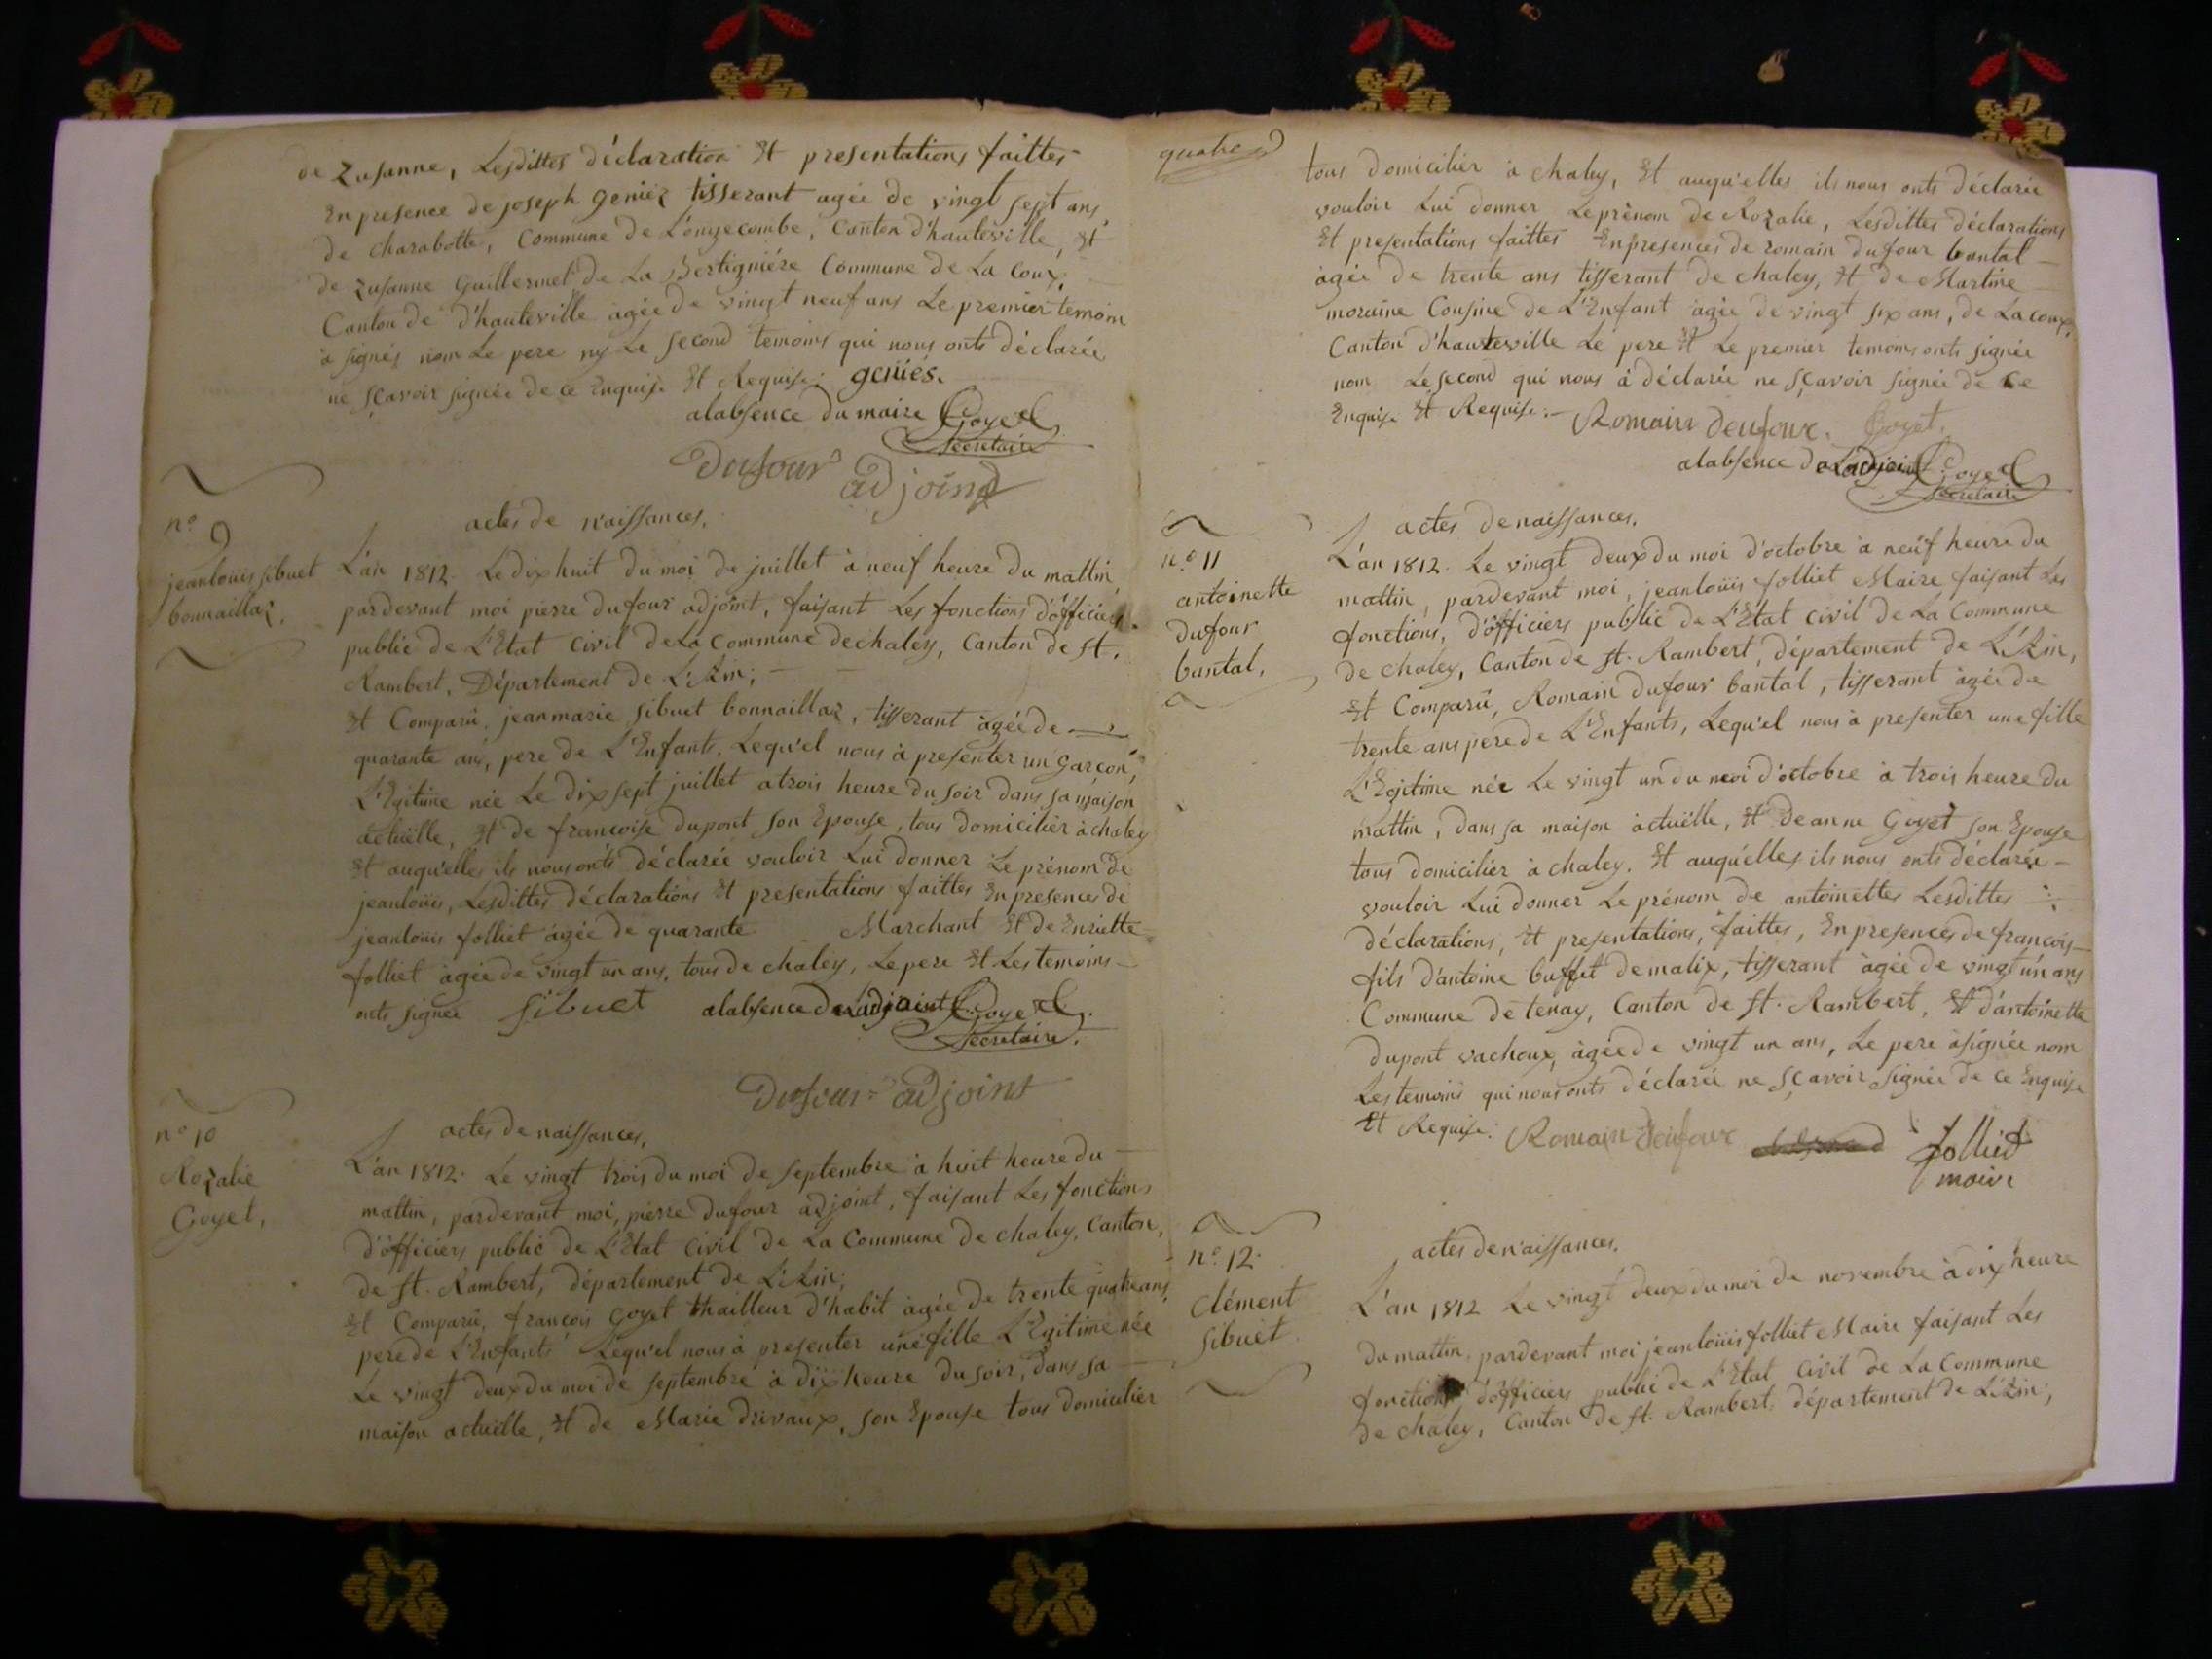 de Zusanne, Lesdittes déclaration Et presentations faittes
En presence de joseph geniez tisserant agée de vingt sept ans,
de charabotte, Commune de Longecombe, Canton d'hauteville, Et
de Zusanne Guillermet de La Bertigniére Commune de La Coux,
Canton de d'hauteville àgée de vingt neuf ans Le premier temoin
à signés nom Le pere ny Le second temoins qui nous onts déclarée
ne sçavoir signée de ce Enquise Et Requise: geniés.
alabsence du maire Goyet
Secretaire
Dufour adjoind
actes de naissances.
n.º 9
jeanloüis sibuet
bonnaillaz,
L'an 1812. Le dix huit du moi de juillet à neuf heure du mattin
pardevant moi pierre dufour adjoint, faisant Les fonctions d'officiers
public de L'Etat civil de La Commune de chaley, Canton de st.
Rambert, Département de L'Ain;
Et Comparû, jeanmarie sibuet bonnaillaz, tisserant àgée de
quarante ans, pere de L'Enfants, Lequ'el nous à presenter un garçon,
L'Egitime née Le dix sept juillet a trois heure du soir dans sa maison
actuëlle, Et de françoise dupont son Epouse, tous domicilier à chaley
Et auqu'elles ils nous onts déclarée vouloir Lui donner Le prénom de
jeanloüis, Lesdittes déclarations Et presentations faittes En presences de
jeanloüis folliet àgée de quarante Marchant Et de Enriette
folliet àgée de vingt un ans, tous de chaley, Le pere Et Les temoins
onts signée sibuet alabsence de Ladjoint Goyet
Secretaire.
Dufour adjoint
actes de naissances.
n.º 10
Rozalie
Goyet,
L'an 1812. Le vingt trois du moi de septembre à huit heure du
mattin, pardevant moi, pierre dufour adjoint, faisant Les fonctions
d'officiers public de L'Etat civil de La Commune de chaley, Canton,
de st. Rambert, département de L'Ain;
Et Comparû, françois goyet thailleur d'habit àgée de trente quatre ans,
pere de L'Enfants Lequ'el nous à presenter une fille L'Egitime née
Le vingt deux du moi de septembre à dix heure du soir, dans sa
maison actuëlle, Et de Marie drivaux, son Epouse tous domicilier
quatre
tous domicilier à chaley, Et auqu'elles ils nous onts déclarée
vouloir Lui donner Le prénom de Rozalie, Lesdittes déclarations
Et presentations faittes En presences de romain dufour bantal
àgée de trente ans tisserant de chaley, Et de Martine
moraine Cousine de L'Enfant àgée de vingt six ans, de La coux,
Canton d'hauteville Le pere Et Le premier temoins onts signée
nom Le second qui nous à déclarée ne sçavoir signée de Ce
Enquise Et Requise: Romain deufour. Goyet.
alabsence de Ladjoint Goyet
Secretaire
actes de naissances.
n.º 11
antoinette
dufour
bantal,
L'an 1812. Le vingt deux du moi d'octobre à neuf heure du
mattin, pardevant moi, jeanloüis folliet Maire faisant Les
fonctions, d'officiers public de L'Etat civil de La Commune
de chaley, Canton de st. Rambert, département de L'Ain,
Et Comparû, Romain dufour bantal, tisserant àgée de
trente ans pere de L'Enfants, Lequ'el nous à presenter une fille
L'Egitime née Le vingt un du moi d'octobre à trois heure du
mattin, dans sa maison actuëlle, Et de anne Goyet son Epouse
tous domicilier à chaley, Et auqu'elles ils nous onts déclarée
vouloir Lui donner Le prénom de antoinettes Lesdittes
déclarations, Et presentations, faittes, En presences de françois
fils d'antoine buffet de malix, tisserant àgée de vingt un ans
Commune de tenay, Canton de st. Rambert, Et d'antoinette
dupont vachoux, àgée de vingt un ans, Le pere à signée nom
Les temoins qui nous onts déclarée ne sçavoir signée de ce Enquise
Et Requise: Romain deufour folliet
maire
actes de naissances.
n.º 12.
Clément
Sibuet.
L'an 1812 Le vingt deux du moi de novembre à dix heure
du mattin, pardevant moi jeanloüis folliet Maire faisant Les
fonctions d'officiers public de L'Etat civil de La Commune
de chaley, Canton de st. Rambert, département de L'Ain;